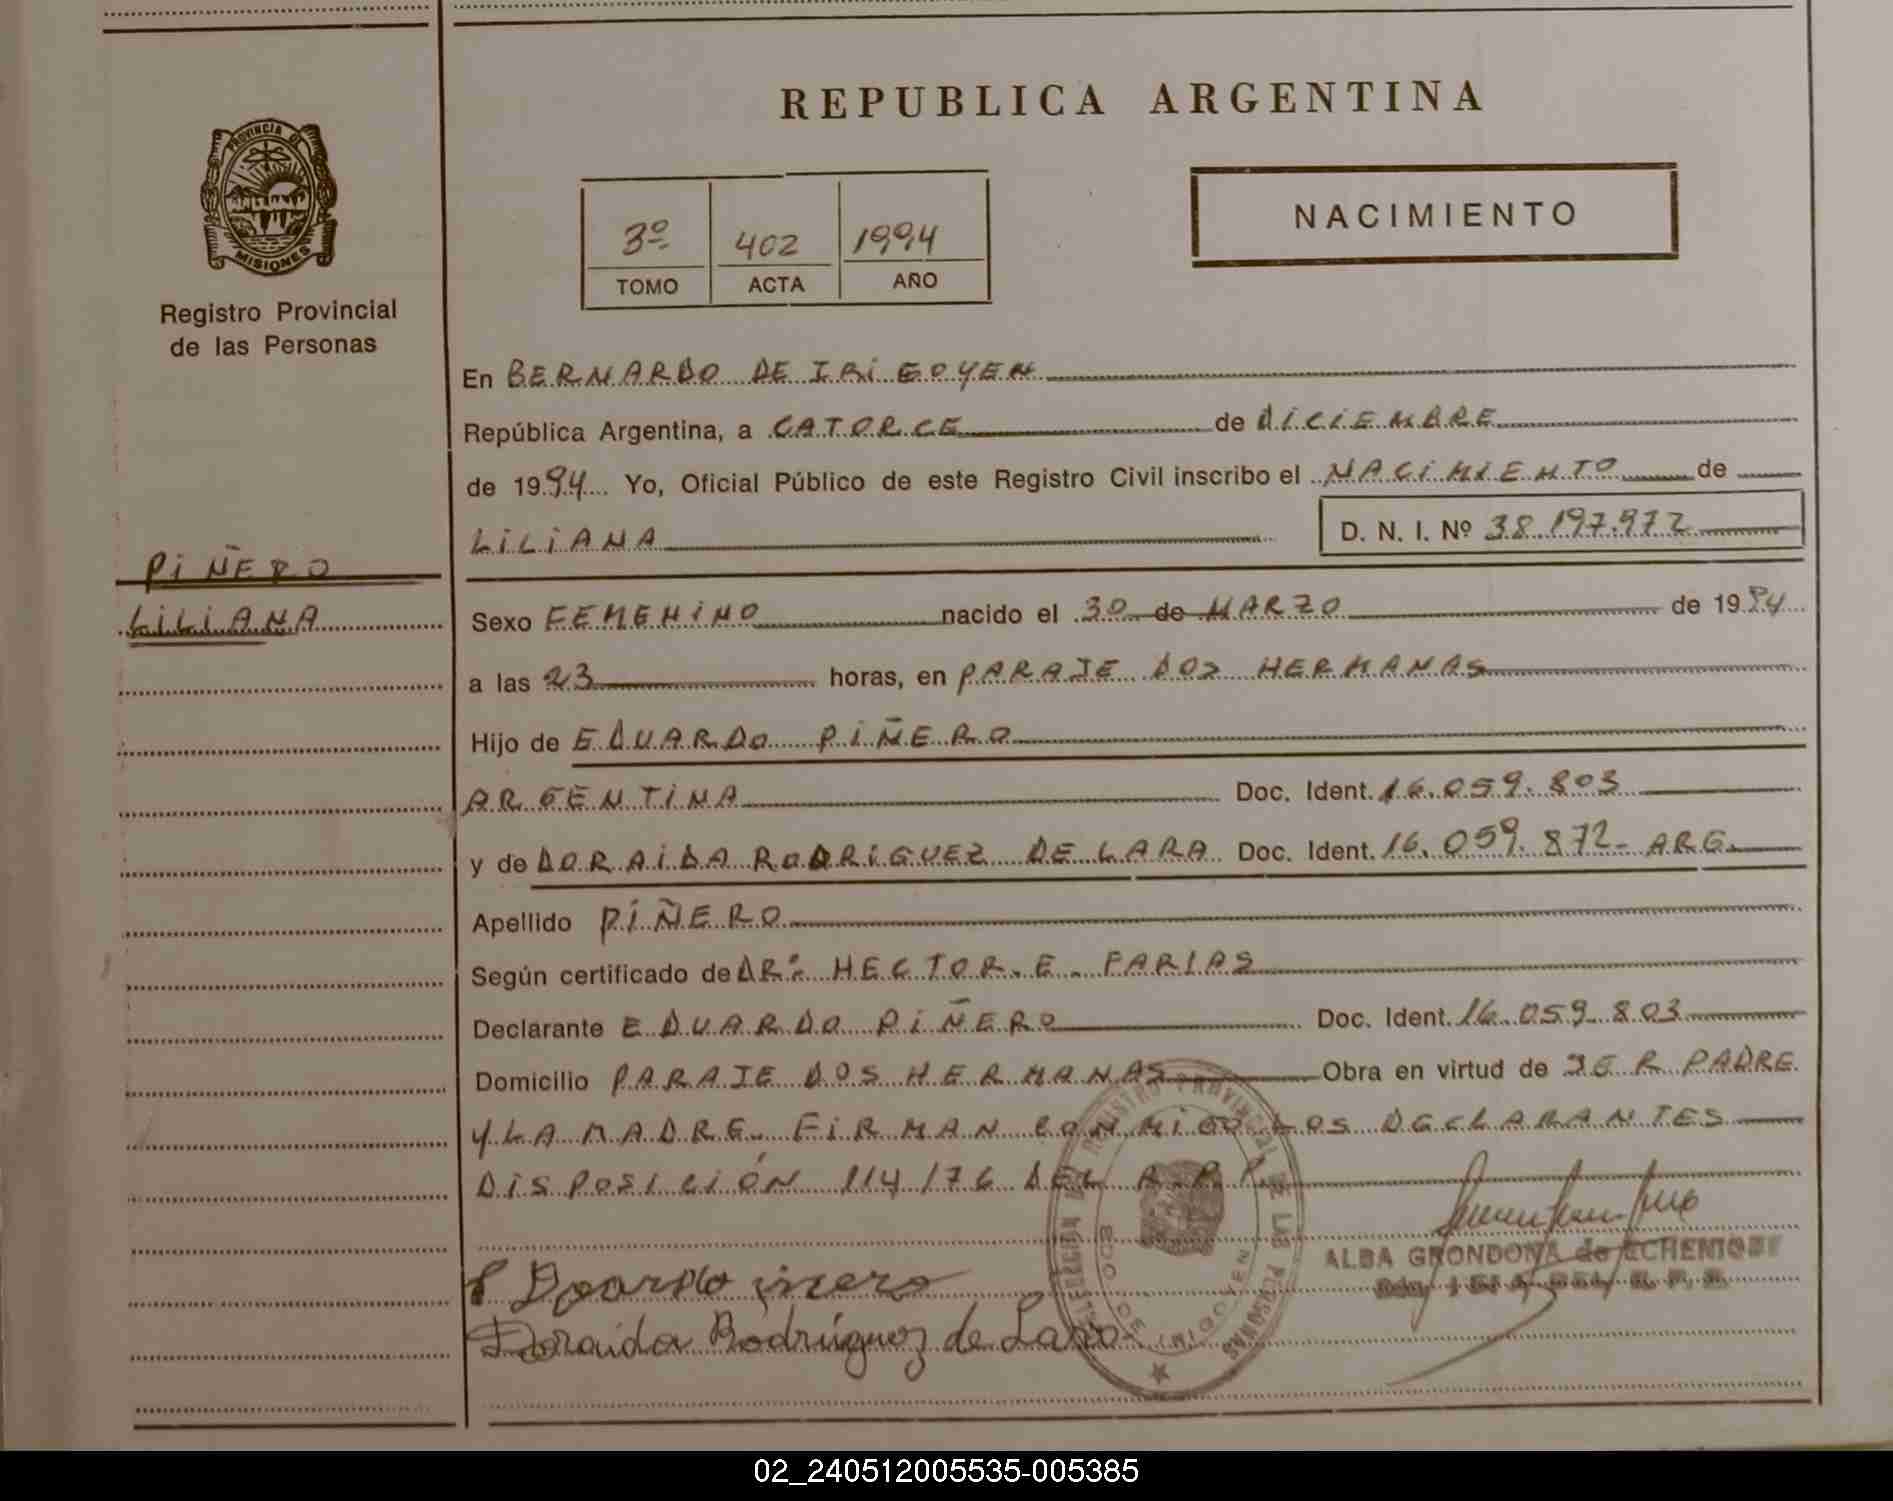 REPUBLICA ARGENTINA
PROVINCIA DE
MISIONES
Registro Provincial
de las Personas
3º 402 1994
TOMO ACTA AÑO
NACIMIENTO
En BERNARDO DE IRIGOYEN
República Argentina, a CATORCE de DICIEMBRE
de 1994 Yo, Oficial Público de este Registro Civil inscribo el NACIMIENTO de
LILIANA D. N. I. Nº 38.197.972
PIÑERO
LILIANA
Sexo FEMENINO nacido el 30 de MARZO de 1994
a las 23 horas, en PARAJE DOS HERMANAS
Hijo de EDUARDO PIÑERO
ARGENTINA Doc. Ident. 16.059.803
y de DORAIDA RODRIGUEZ DE LARA Doc. Ident. 16.059.872- ARG.
Apellido PIÑERO
Según certificado de DR. HECTOR E. FARIAS
Declarante EDUARDO PIÑERO Doc. Ident. 16.059.803
Domicilio PARAJE DOS HERMANAS Obra en virtud de SER PADRE
Y LA MADRE. FIRMAN CONMIGO LOS DECLARANTES
DISPOSICIÓN 114/76 DEL R.P.P.
REGISTRO PROVINCIAL DE LAS PERSONAS
BDO DE IRIGOYEN
ALBA GRONDONA de ECHENIQUE
R. P. P.
Doraida Rodríguez de Lara
02_240512005535-005385